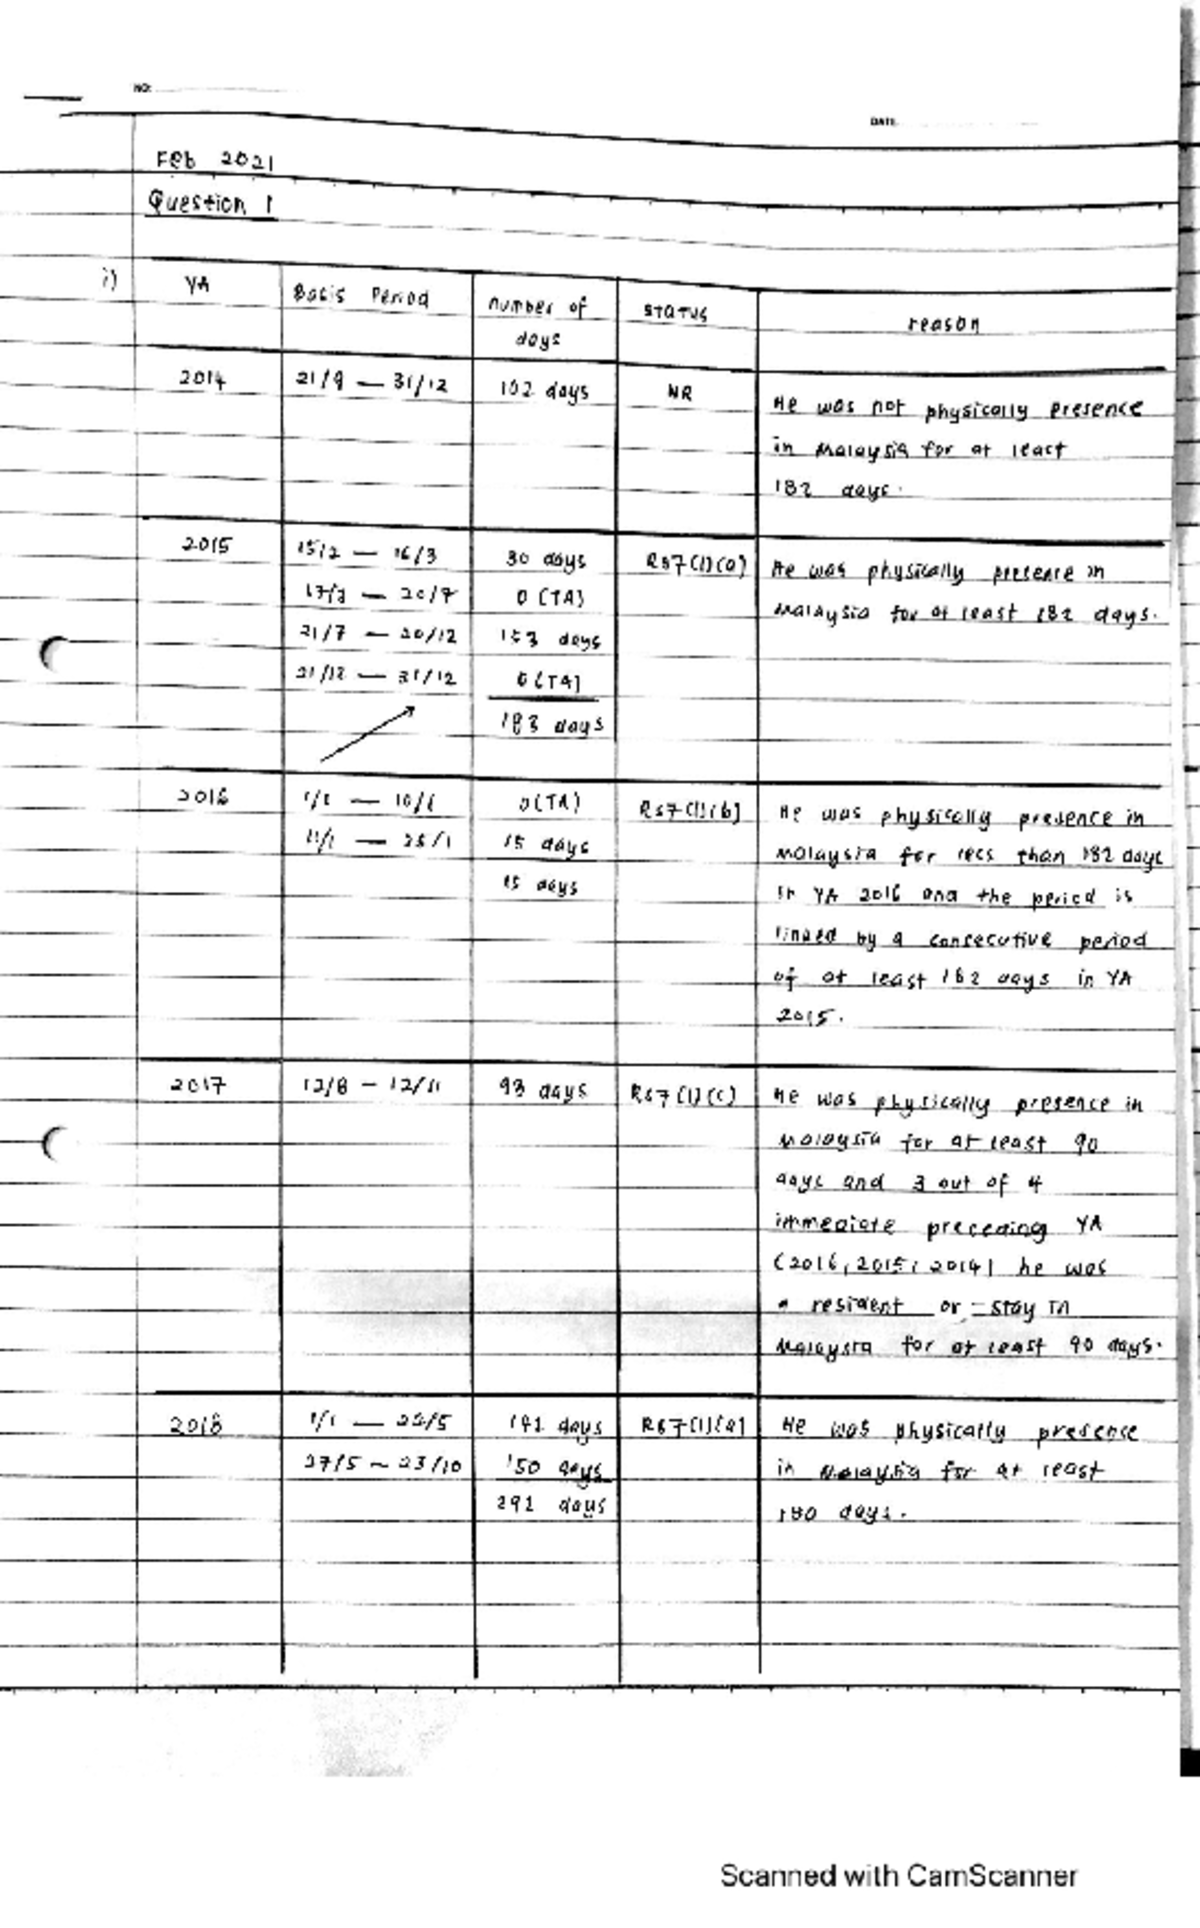 NO:
DATE
Feb 2021
Question 1
i) YA Basis Period number of days STATUS reason
2014 21/9 — 31/12 102 days NR He was not physically presence
in Malaysia for at least
182 days.
2015 15/2 — 16/3 30 days R s7(1)(a) He was physically presence in
17/3 — 20/7 0 (TA) Malaysia for at least 182 days.
21/7 — 20/12 153 days
21/12 — 31/12 0(TA)
183 days
2016 1/1 — 10/1 0(TA) R s7(1)(b) He was physically presence in
11/1 — 25/1 15 days Malaysia for less than 182 days
15 days in YA 2016 and the period is
linked by a consecutive period
of at least 182 days in YA
2015.
2017 12/8 — 12/11 93 days R s7(1)(c) He was physically presence in
Malaysia for at least 90
days and 3 out of 4
immediate preceding YA
(2016, 2015, 2014) he was
a resident or stay in
Malaysia for at least 90 days.
2018 1/1 — 22/5 142 days R s7(1)(a) He was physically presence
27/5 — 23/10 150 days in Malaysia for at least
292 days 180 days.
Scanned with CamScanner